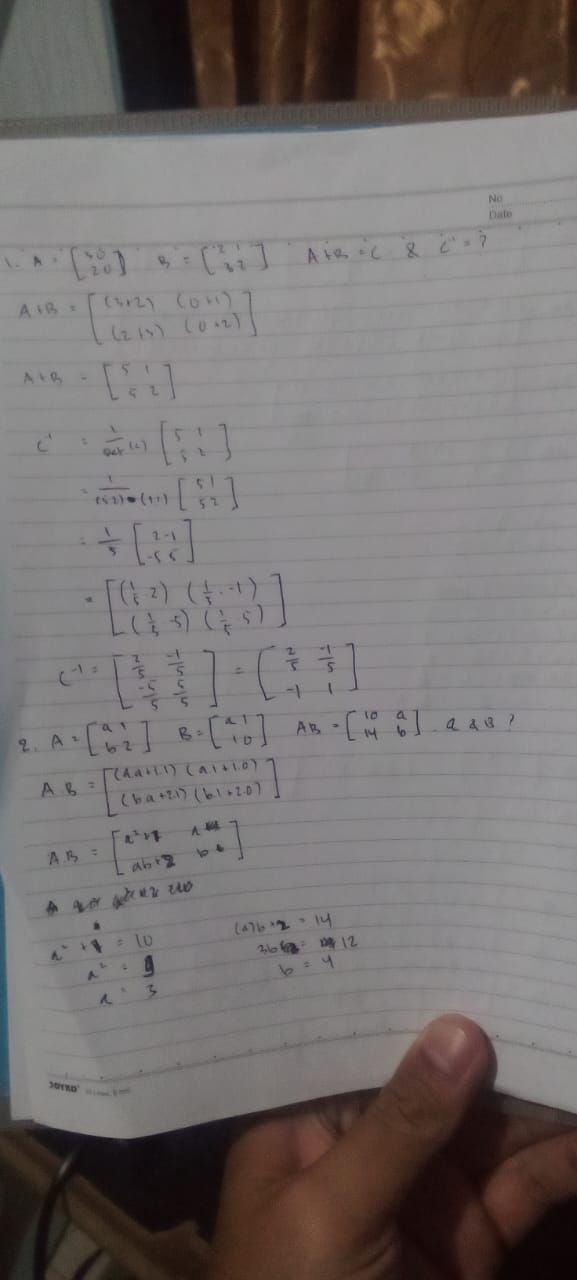 No
Date
1. A = [3 0 2 0] B = [2 1 3 2] A+B = C & C⁻¹ = ?
A+B = [(3+2) (0+1) (2+3) (0+2)]
A+B = [5 1 5 2]
= 1/det(c) [5 1 5 2]
[5 1 5 2]
= 1/5 [2 -1 -5 5]
= [(1/5 . 2) (1/5 . -1) (1/5 . -5) (1/5 . 5)]
C⁻¹ = [2/5 -1/5 -5/5 5/5] = [2/5 -1/5 -1 1]
2. A = [a 1 b 2] B = [a 1 1 0] AB = [10 a 14 b] . a & B ?
AB = [(a.a+1.1) (a.1+1.0) (b.a+2.1) (b.1+2.0)]
AB = [a²+1 a ab+2 b]
a² + 1 = 10 (a)b + 2 = 14
a² = 9 3b = 12
a = 3 b = 4
JOYKO